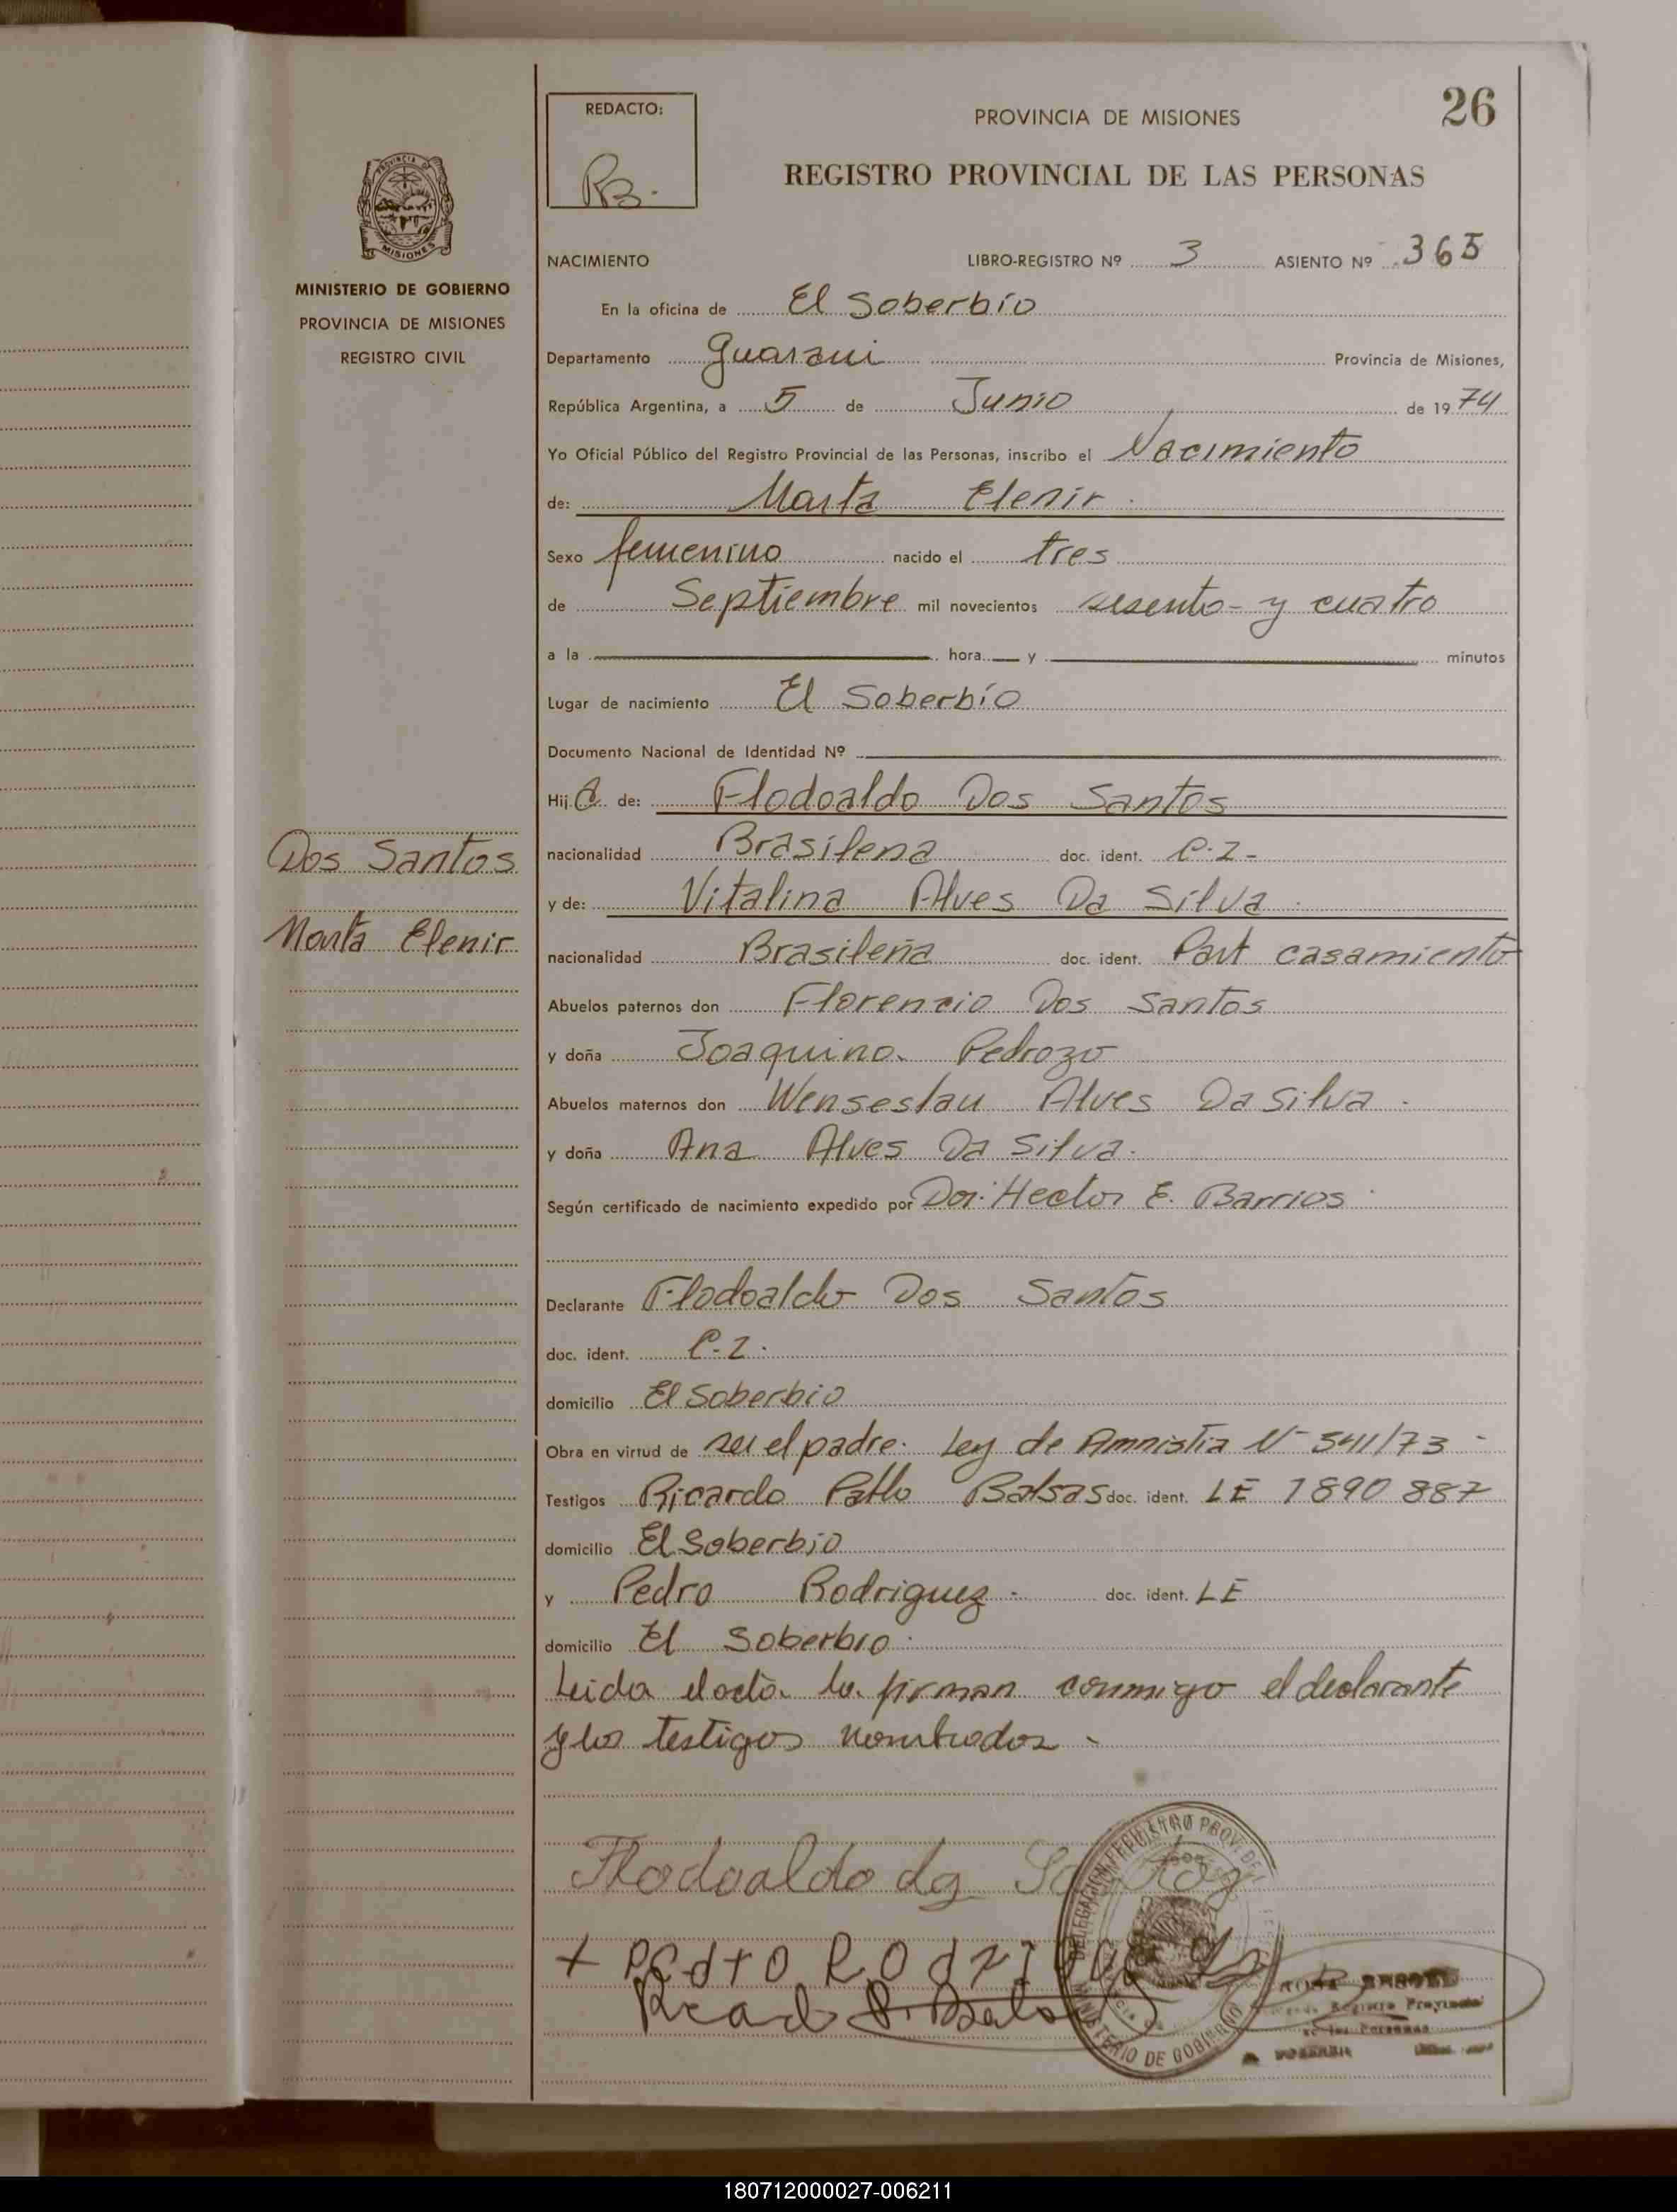 26
REDACTO:
PROVINCIA DE MISIONES
REGISTRO PROVINCIAL DE LAS PERSONAS
RB.
PROVINCIA DE
MISIONES
MINISTERIO DE GOBIERNO
PROVINCIA DE MISIONES
REGISTRO CIVIL
NACIMIENTO LIBRO-REGISTRO Nº 3 ASIENTO Nº 365
En la oficina de El Soberbio
Departamento Guarani Provincia de Misiones,
República Argentina, a 5 de Junio de 1974
Yo Oficial Público del Registro Provincial de las Personas, inscribo el Nacimiento
de: Marta Elenir.
Sexo femenino nacido el tres
de Septiembre mil novecientos sesenta y cuatro
a la hora y minutos
Lugar de nacimiento El Soberbio
Documento Nacional de Identidad Nº
Hija de: Flodoaldo Dos Santos
Dos Santos
nacionalidad Brasilena doc. ident. C.I-
y de: Vitalina Alves Da Silva.
Marta Elenir
nacionalidad Brasileña doc. ident. Part casamiento
Abuelos paternos don Florencio Dos Santos
y doña Joaquina Pedrozo
Abuelos maternos don Wenseslau Alves Da Silva.
y doña Ana Alves Da Silva.
Según certificado de nacimiento expedido por Dor. Hector E. Barrios.
Declarante Flodoaldo Dos Santos
doc. ident. C.I.
domicilio El Soberbio
Obra en virtud de ser el padre. Ley de Amnistia Nº 541/73-
Testigos Ricardo Pablo Balsas doc. ident. LE 1890887
domicilio El Soberbio
y Pedro Rodriguez.- doc. ident. LE
domicilio El Soberbio.
Leida el acta la firman conmigo el declarante
y los testigos nombrados-
Flodoaldo dos Santos
+ Pedro Rodriguez
DE GOBIERNO
180712000027-006211